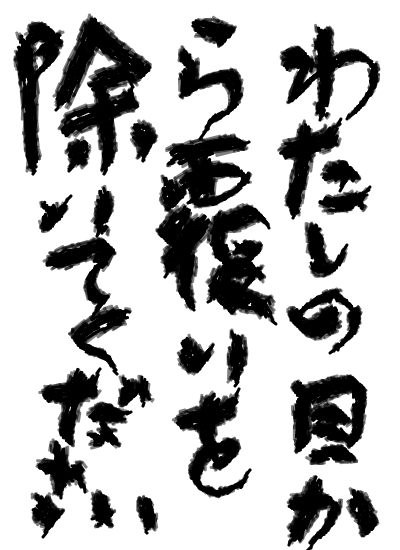 わたしの目か
ら覆いを
除いてください